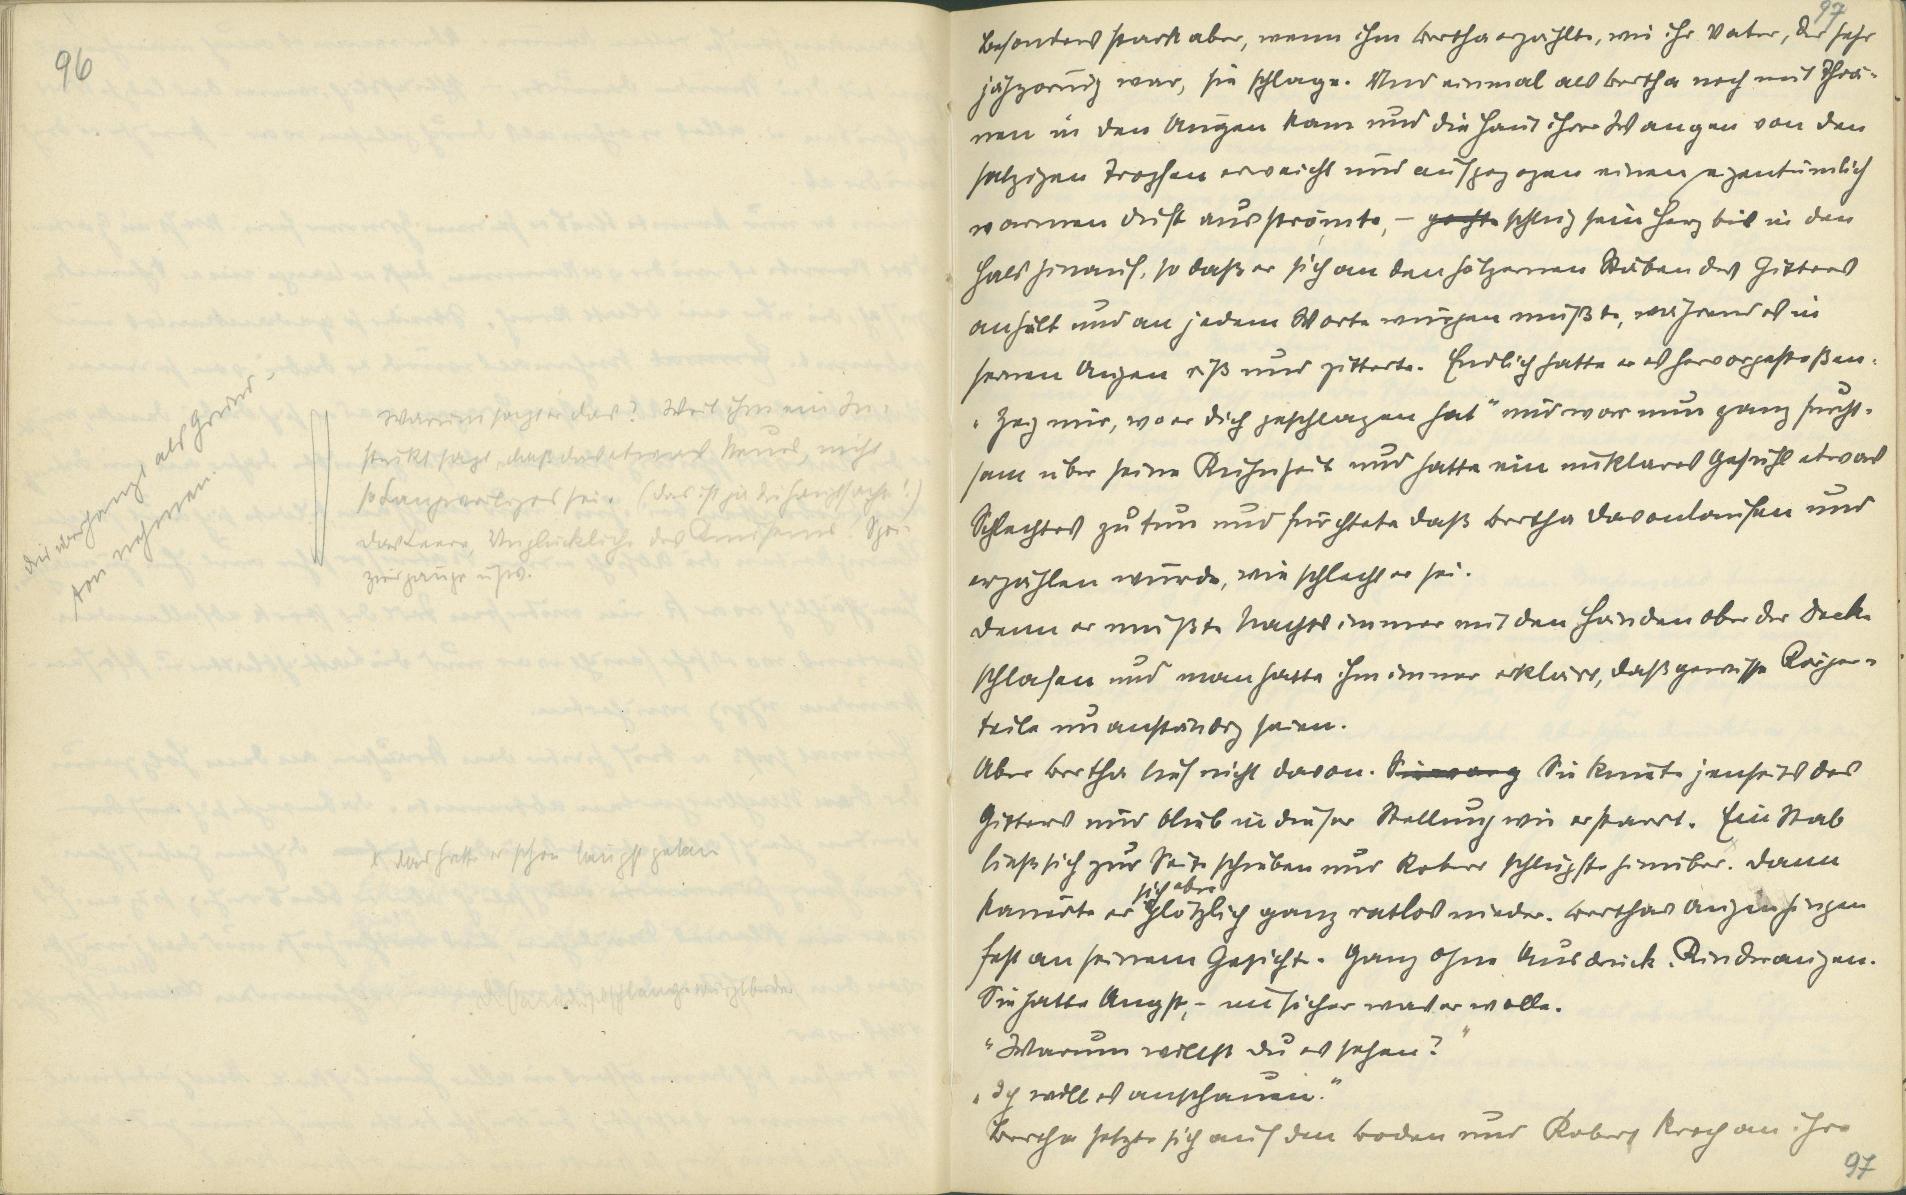 96
Die überhaupt als Grund-
ton nehmen.
Warum sagt er das? Weil ihm ein In-
stinkt sagt, daß das etwas Neues, nicht
so Langweiliges sei. (das ist ja die Hauptsache!)
das Leere, Unglückliche des Spa-
ziergänge usw.
x das hatte er schon längst getan
97
besonders stark aber, wenn ihm Bertha erzählte, wie ihr Vater, der sehr
jähzornig war, sie schlage. Und einmal als Bertha noch mit Thrä-
nen in den Augen kam und die Haut ihrer Wangen von den
salzigen Tropfen erweicht und aufgezogen einen eigentümlich
warmen Duft ausströmte, – pochte schlug sein Herz bis in den
Hals hinauf, so daß er sich an den hölzernen Stäben des Gitters
anhielt und an jedem Worte würgen mußte, während es in
seinen Augen riß und zitterte. Endlich hatte er es hervorgestoßen.
„Zeig mir, wo er dich geschlagen hat" und war nun ganz furcht-
sam über seine Kühnheit und hatte ein unklares Gefühl etwas
Schlechtes zu tun und fürchtete daß Bertha davonlaufen und
erzählen würde, wie schlecht er sei.
Denn er mußte Nachts immer mit den Händen ober der Decke
schlafen und man hatte ihm immer erklärt, daß gewisse Körper-
teile unanständig seien.
Aber Bertha lief nicht davon. Sie kniete jenseits des
Gitters und blieb in dieser Stellung wie erstarrt. Ein Stab
ließ sich zur Seite schieben und Robert schlüpfte hinüber. Dann
kauerte er sich aber plötzlich ganz ratlos nieder. Berthas Augen hingen
fest an seinem Gesicht. Ganz ohne Ausdruck. Kinderaugen.
Sie hatte Angst, – unsicher was er wolle.
„Warum willst du es sehen?"
„Ich will es anschauen."
Bertha setzte sich auf den Boden und Robert kroch an ihre
97